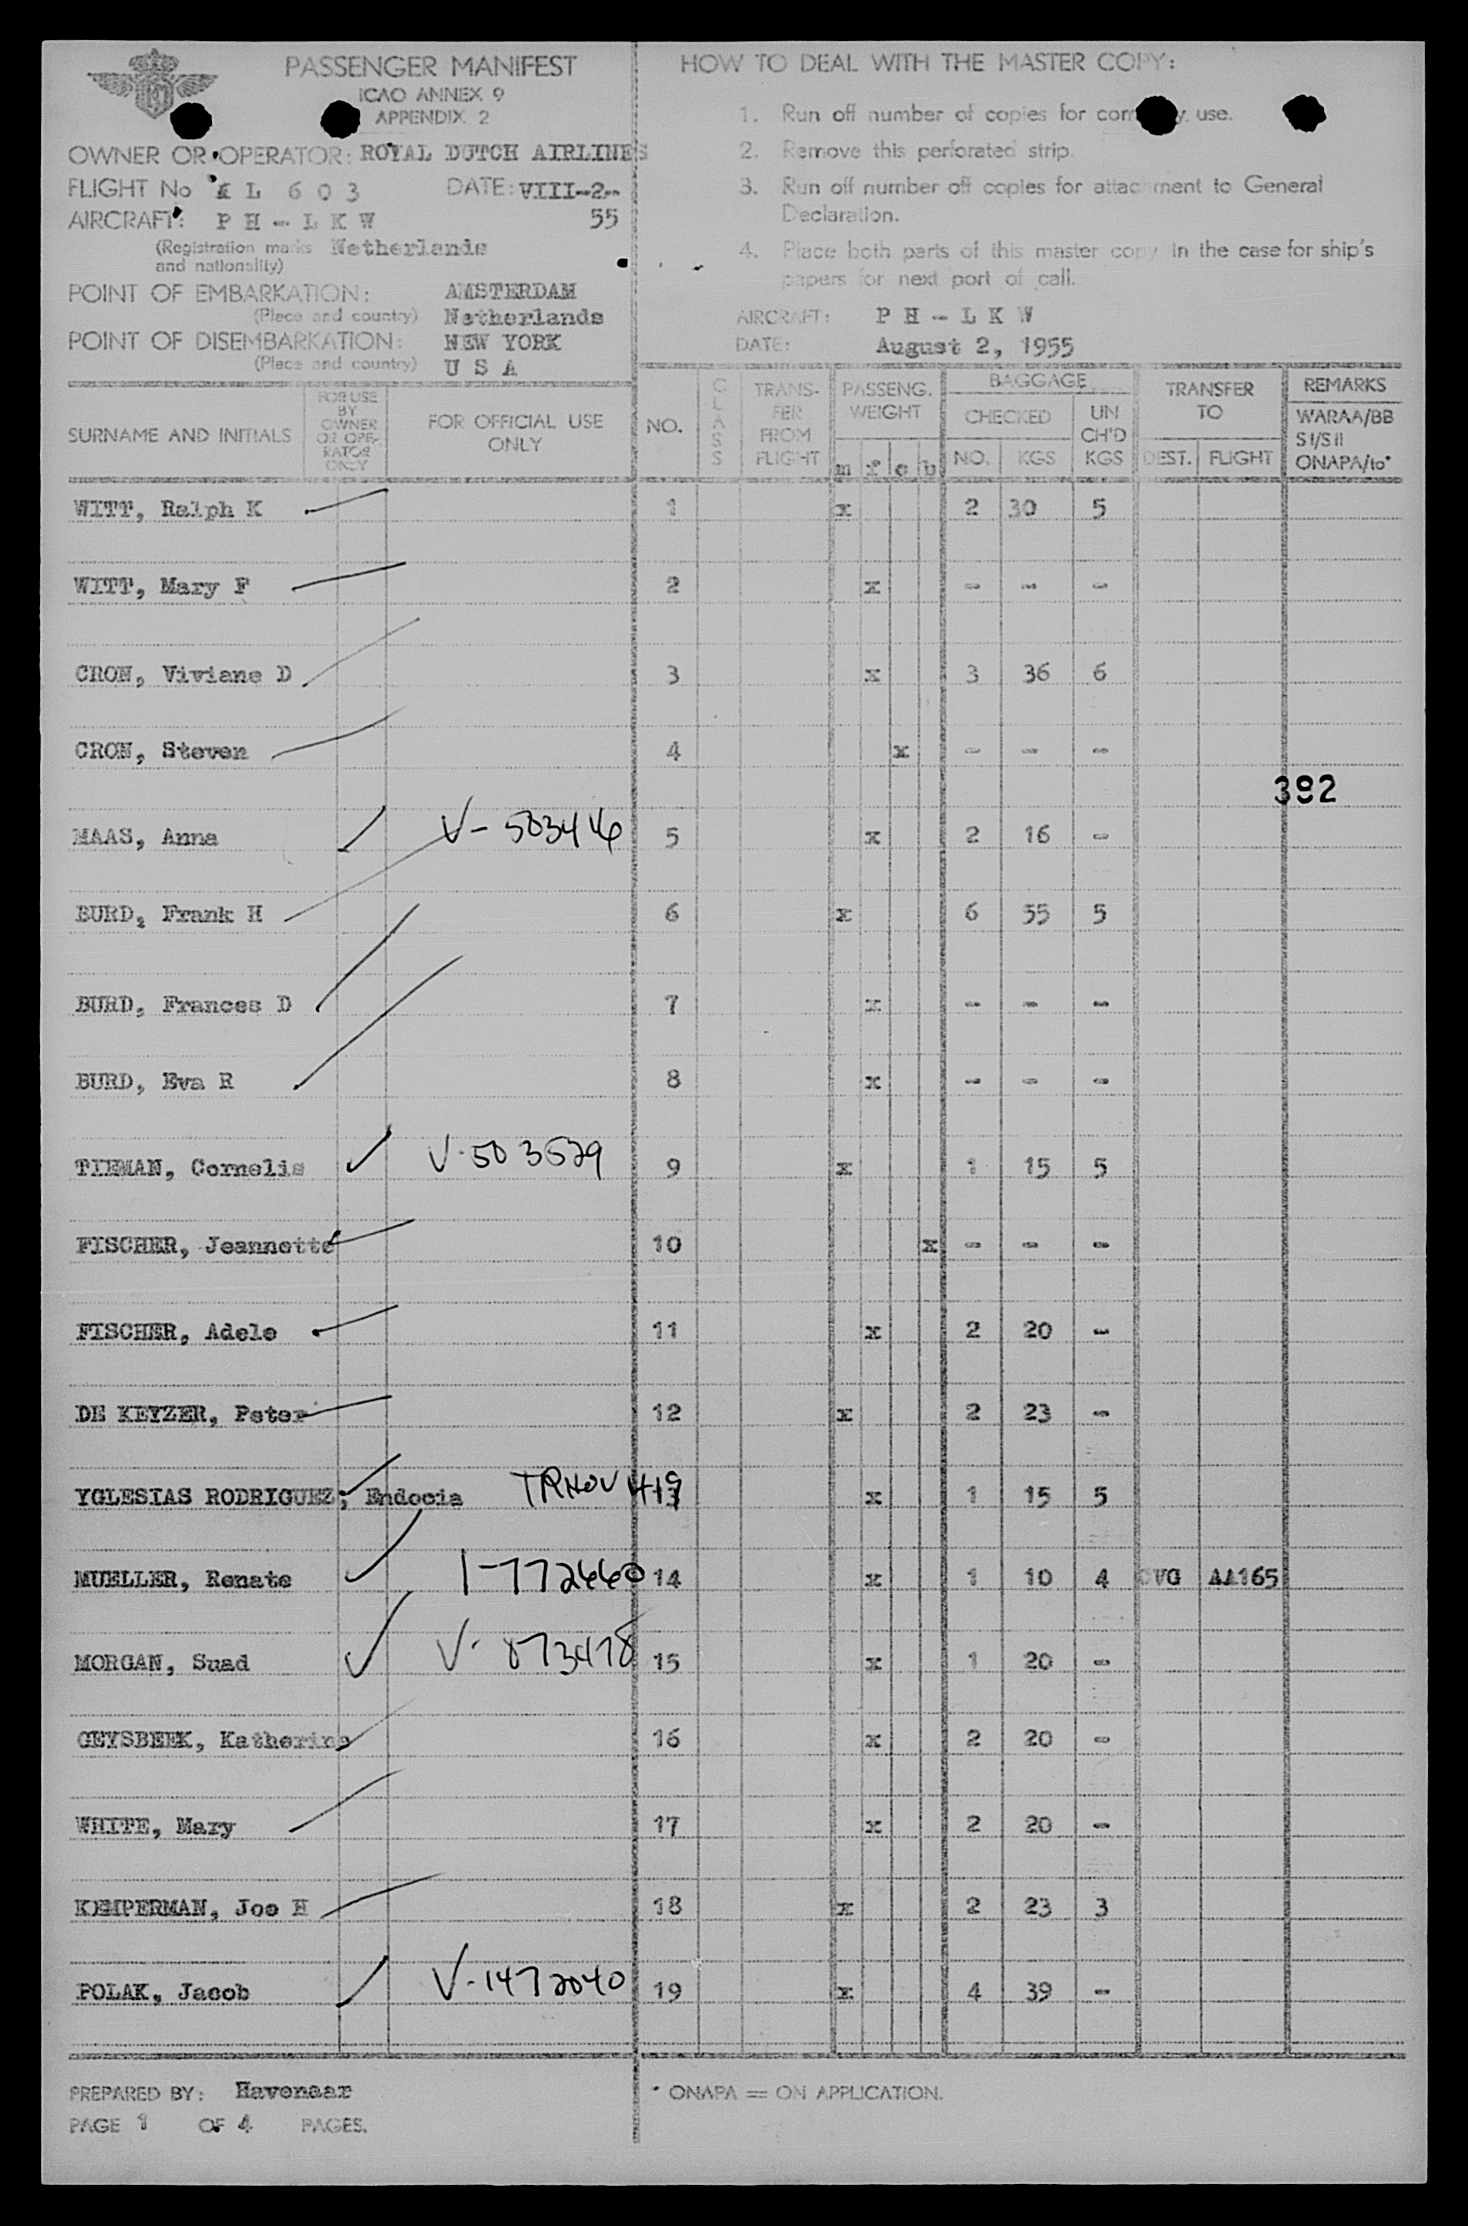 PASSENGER MANIFEST
ICAO ANNEX 9
APPENDIX 2
OWNER OR OPERATOR: ROYAL DUTCH AIRLINES
FLIGHT No KL 603 DATE: VIII-2-
55
AIRCRAFT: PH-LKW
(Registration marks Netherlands
and nationality)
POINT OF EMBARKATION: AMSTERDAM
(Place and country) Netherlands
POINT OF DISEMBARKATION: NEW YORK
(Place and country) U S A
HOW TO DEAL WITH THE MASTER COPY:
1. Run off number of copies for company use.
2. Remove this perforated strip.
3. Run off number off copies for attachment to General
Declaration.
4. Place both parts of this master copy in the case for ship's
papers for next port of call.
AIRCRAFT: PH-LKW
DATE: August 2, 1955
SURNAME AND INITIALS
FOR USE BY OWNER OR OPERATOR ONLY
FOR OFFICIAL USE ONLY
NO.
CLASS
TRANSFER FROM FLIGHT
PASSENG. WEIGHT
m f c b
BAGGAGE
CHECKED
NO. KGS
UN CH'D KGS
TRANSFER TO
DEST. FLIGHT
REMARKS
WARAA/BB
S I/S II
ONAPA/to*
WITT, Ralph K 1 x 2 30 5
WITT, Mary F 2 x - - -
CRON, Viviane D 3 x 3 36 6
CRON, Steven 4 x - - -
392
MAAS, Anna V-503446 5 x 2 16 -
BURD, Frank H 6 x 6 55 5
BURD, Frances D 7 x - - -
BURD, Eva R 8 x - - -
TIEMAN, Cornelis V-503529 9 x 1 15 5
FISCHER, Jeannette 10 x - - -
FISCHER, Adele 11 x 2 20 -
DE KEYZER, Peter 12 x 2 23 -
YGLESIAS RODRIGUEZ, Endocia 13 x 1 15 5
MUELLER, Renate 1-772660 14 x 1 10 4 CVG AA165
MORGAN, Suad V-873478 15 x 1 20 -
GEYSBEEK, Katherine 16 x 2 20 -
WHITE, Mary 17 x 2 20 -
KEMPERMAN, Joe H 18 x 2 23 3
POLAK, Jacob V-1472040 19 x 4 39 -
PREPARED BY: Havenaar
PAGE 1 OF 4 PAGES.
* ONAPA = ON APPLICATION.